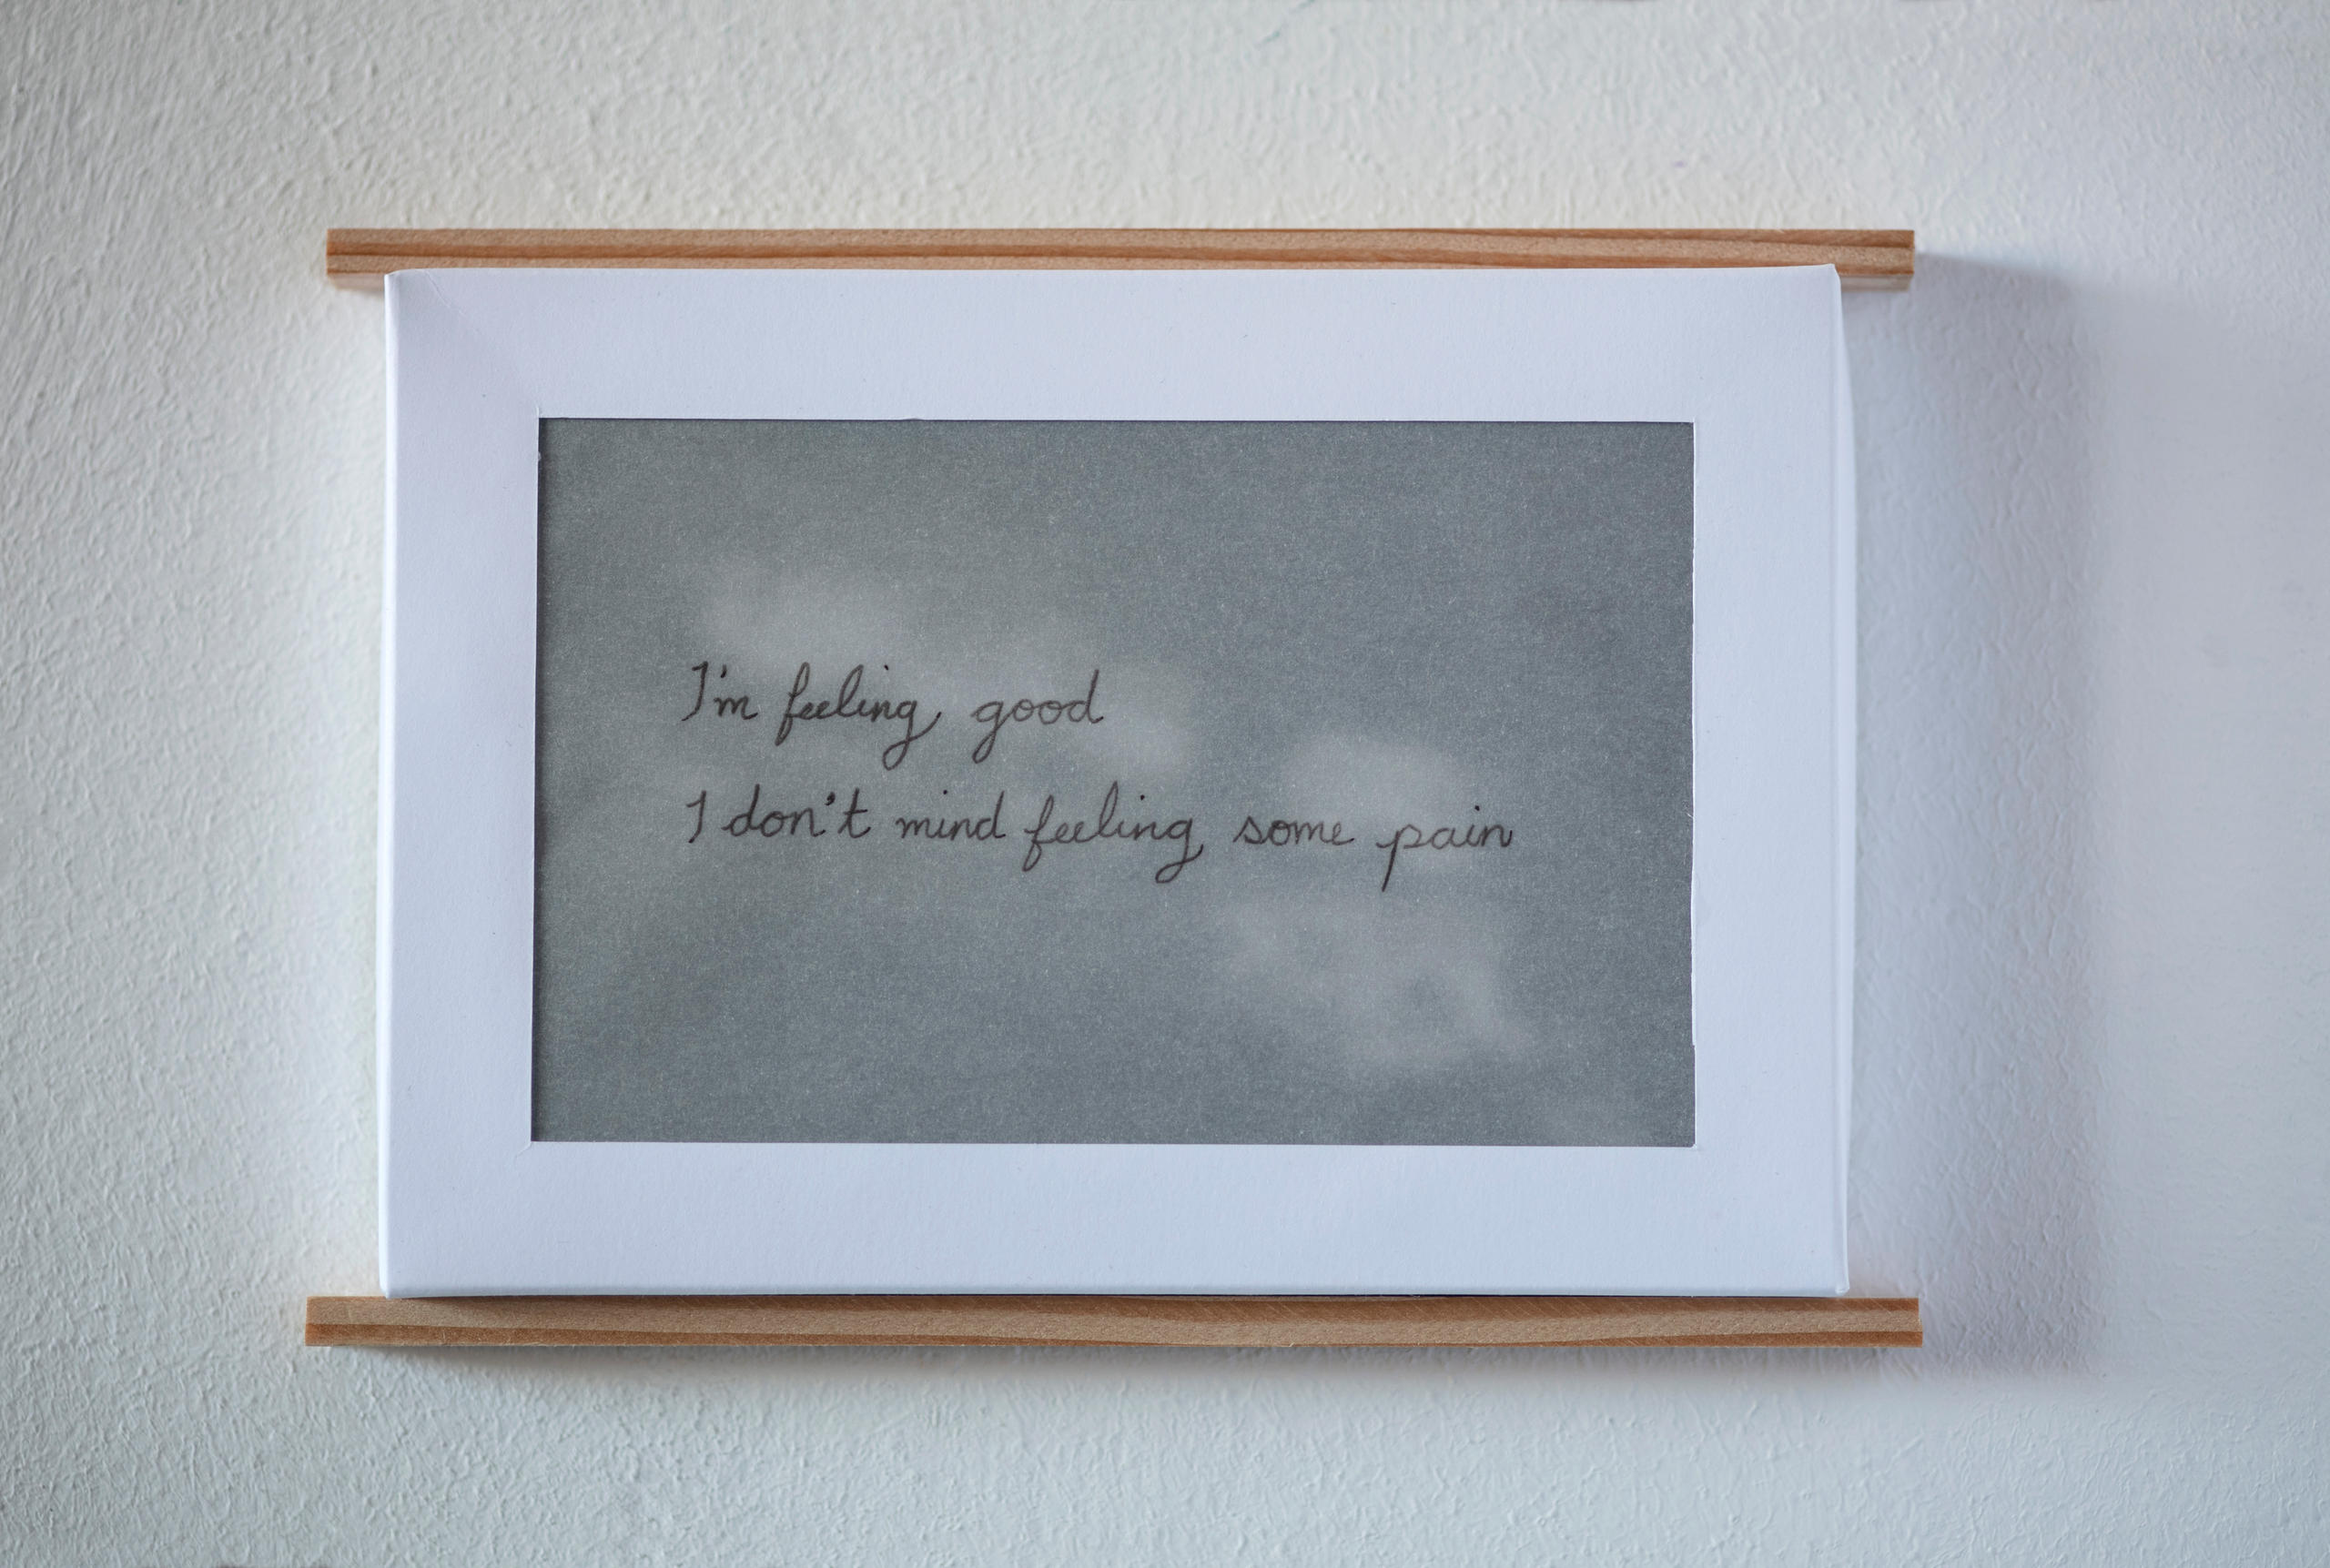 I'm feeling good
I don't mind feeling some pain